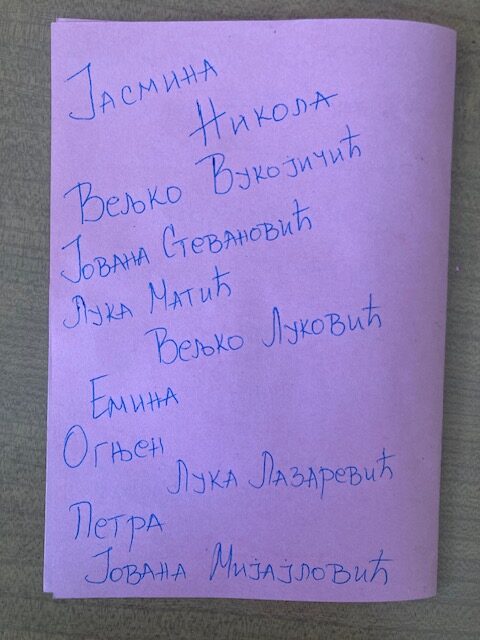 Јасмина
Никола
Вељко Вукојичић
Јована Стевановић
Лука Матић
Вељко Луковић
Емина
Огњен
Лука Лазаревић
Петра
Јована Мијајловић